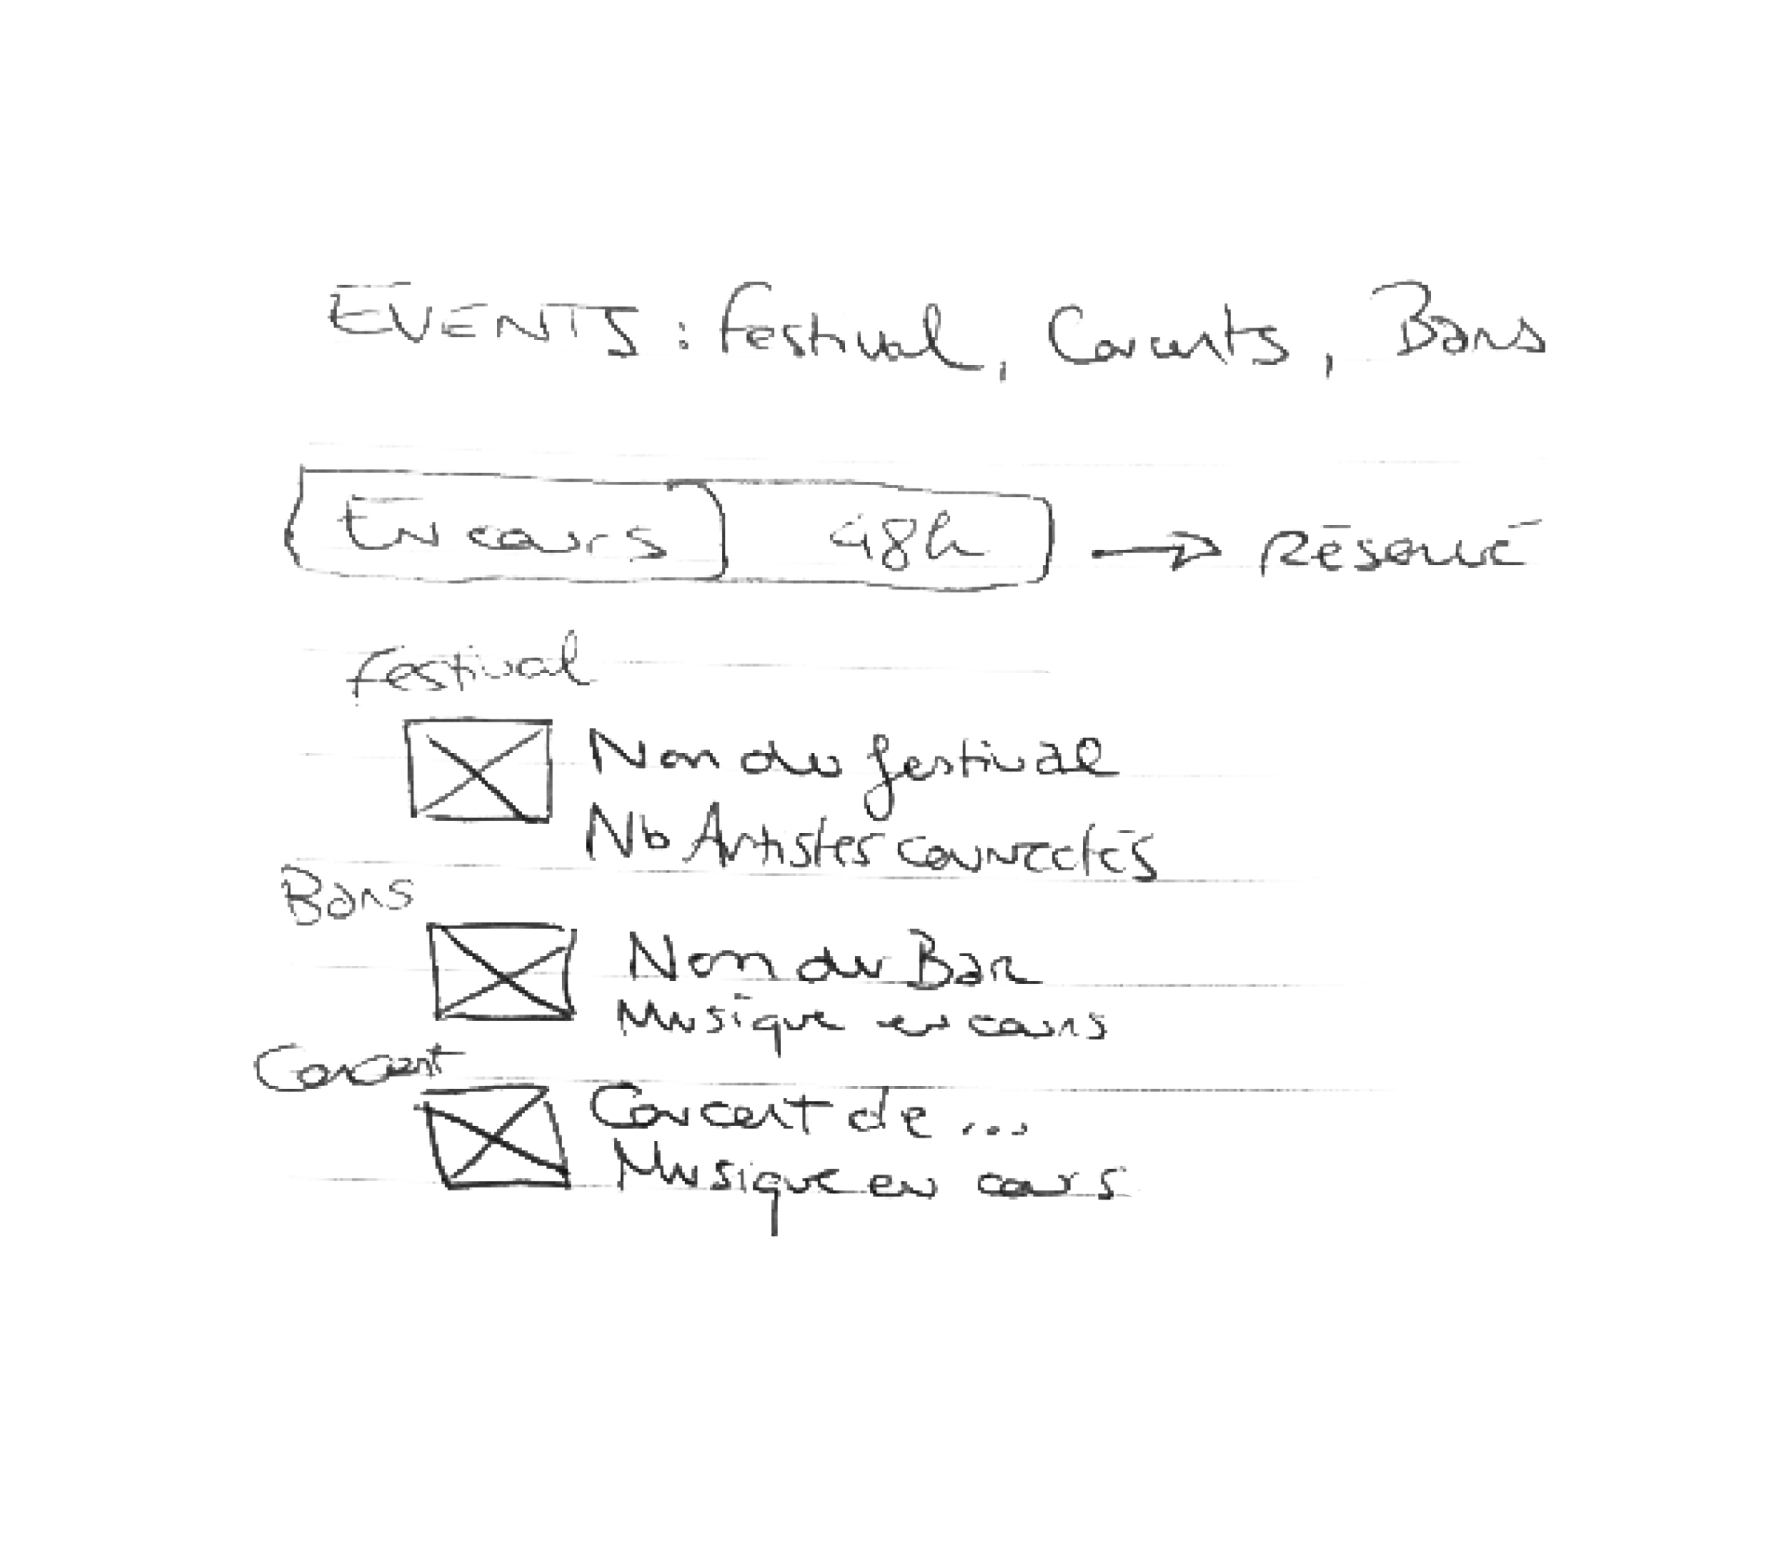 EVENTS : festival, Concerts, Bars
En cours 48h → RÉSERVÉ
festival
Nom du festival
Nb Artistes connectés
Bars
Nom du Bar
Musique en cours
Concert
Concert de ...
Musique en cours